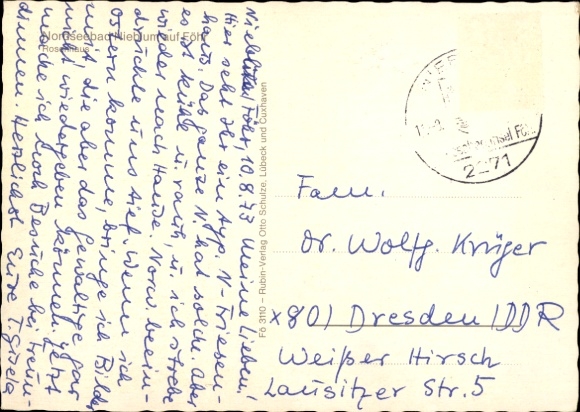 Nordseebad Nieblum auf Föhr
Rosenhaus
Nieblum/Föhr, 10.8.73 Meine Lieben!
Hier seht Ihr ein typ. N-Friesen-
haus. Das ganze N. hat solche. Aber
es ist kühl u. rauh, u. ich strebe
wieder nach Hause. Norw. beein-
druckte uns tief. Wenn ich
Ostern komme, bringe ich Bilder
mit, die aber das Gewaltige gar
nicht wiedergeben können. Jetzt
mache ich noch Besuche bei Freun-
dinnen. Herzlichst Eure T. Gisela
Fö 3110 – Rubin-Verlag Otto Schulze, Lübeck und Cuxhaven
2271
Fam.
Dr. Wolfg. Krüger
x801 Dresden/DDR
Weißer Hirsch
Lausitzer Str. 5